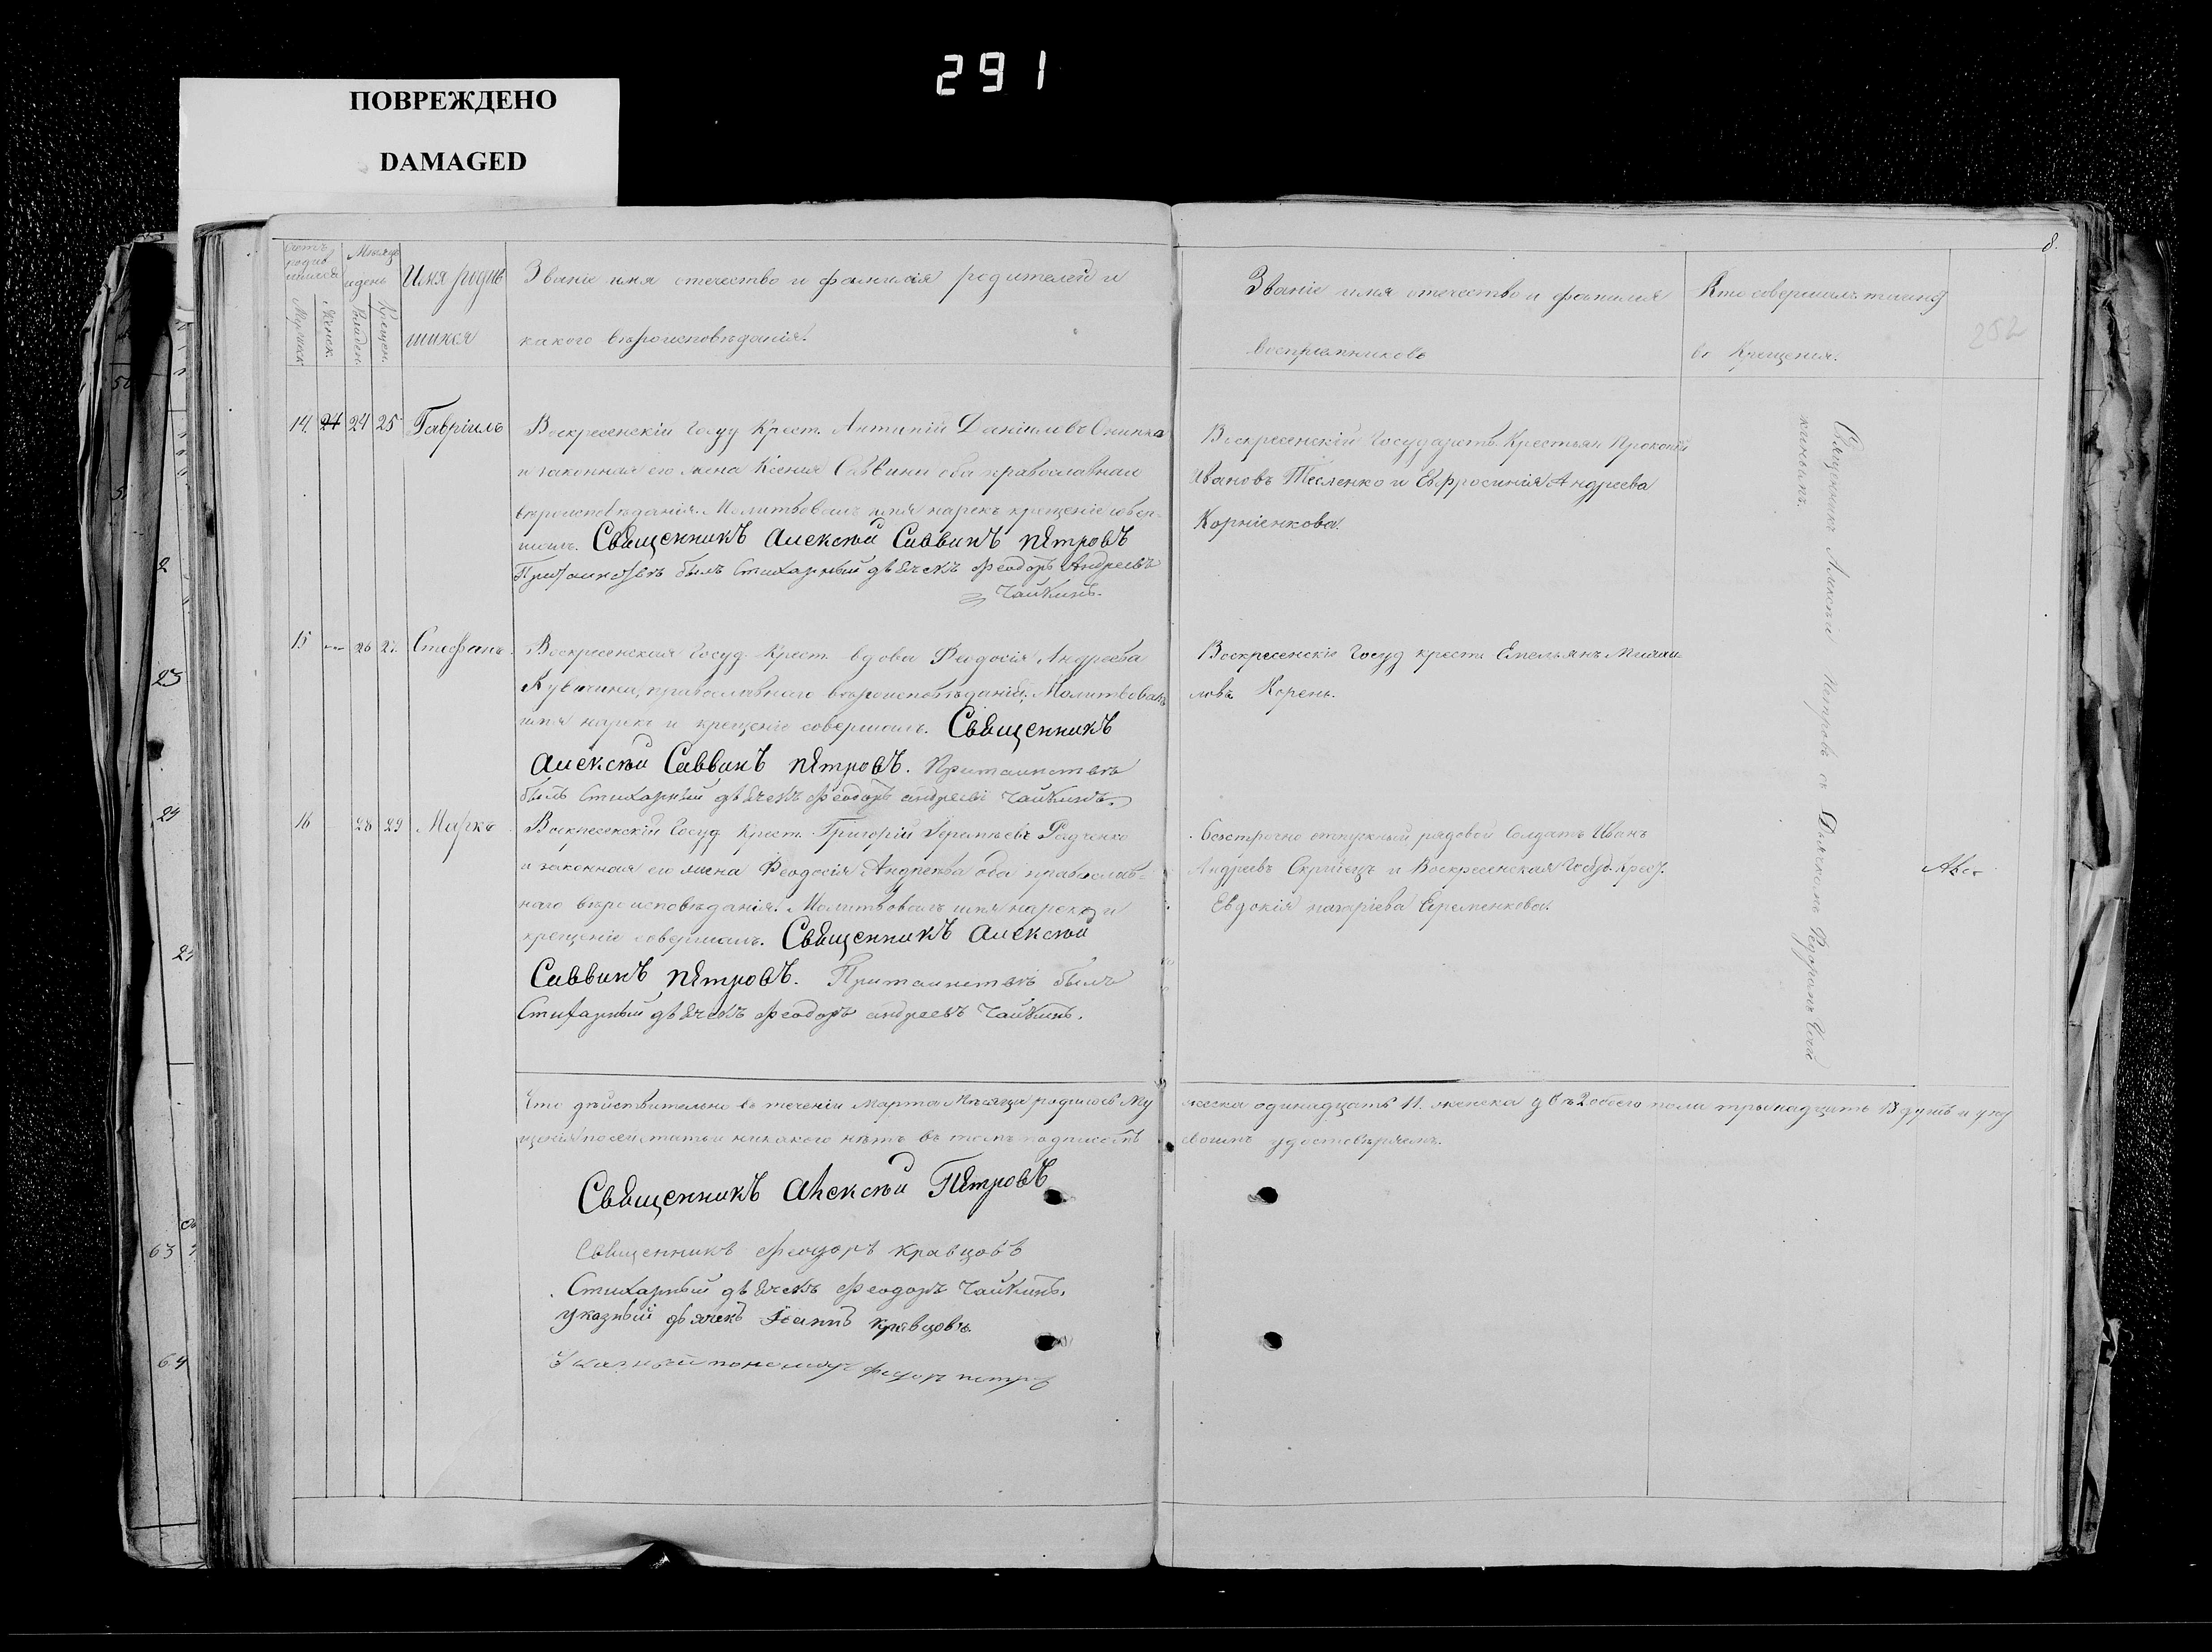 291
ПОВРЕЖДЕНО
DAMAGED
8.
252
Счетъ родив шихся
Мужеск.
Женск.
Мѣсяцъ и день
Рожден.
Крещен.
Имя родив
шихся
Званіе имя отечество и фамилія родителей и
какого вѣроисповѣданія.
Званіе имя отечество и фамилія
воспріемниковъ
Кто совершалъ таинс
во Крещенія.
14. 24 24 25 Гавріилъ
Воскресенскій Госуд Крест. Антипій Даніиловъ
и законная его жена Ксенія Саввина оба православнаго
вѣроисповѣданія. Молитвовалъ имя нарекъ крещеніе совер-
шилъ. Священникъ Алексѣй Саввинъ Петровъ
При таинствѣ былъ Стихарный дьячекъ Феодоръ Андреевъ
Чайкинъ.
Воскресенскій Государств. Крестьян Прокопій
Ивановъ Тесленко и Евфросинія Андреева
Корніенкова.
15 — 26 27. Стефанъ.
Воскресенская Госуд. Крест. вдова Феодосія Андреева
православнаго вѣроисповѣданія; Молитвовалъ
имя нарекъ и крещеніе совершилъ. Священникъ
Алексѣй Саввинъ Петровъ. При таинствѣ
былъ Стихарный дьячекъ Феодоръ Андреевъ Чайкинъ.
Воскресенскіе Госуд крест. Емельянъ Михаи
ловъ Корень.
16 28 29 Марко
Воскресенскій Госуд Крест. Григорій Радченко
и законная его жена Феодосія Андреева оба православ-
наго вѣроисповѣданія. Молитвовалъ имя нарекъ и
крещеніе совершилъ. Священникъ Алексѣй
Саввинъ Петровъ. При таинствѣ былъ
Стихарный дьячекъ Феодоръ Андреевъ Чайкинъ.
безсрочно отпускный рядовой Солдатъ Иванъ
Андреевъ и Воскресенская Госуд. Крест.
Евдокія Еременкова.
Священникъ Алексѣй Петровъ съ Дьячкомъ Феодоромъ Чай
кинымъ.
Что дѣйствительно въ теченіи Марта Мѣсяца родилось Му
жеска одинадцать 11. женска двѣ 2 обоего пола тринадцать 13 душъ и
по сей статьи никакого нѣтъ въ томъ подписомъ
своимъ удостовѣряемъ.
Священникъ Алексѣй Петровъ
Священникъ Феодоръ Кравцовъ
Стихарный дьячекъ Феодоръ Чайкинъ.
Указный дьячекъ Іоаннъ Кравцовъ
Указный пономарь Федоръ Петров